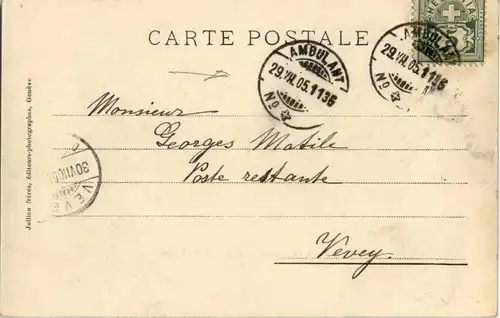 CARTE POSTALE
AMBULANT
29.VII.05.1136
No 4
AMBULANT
29.VII.05.1136
No 4
Monsieur
Georges Matile
Poste restante
Vevey.
Jullien frères, éditeurs-photographes, Genève